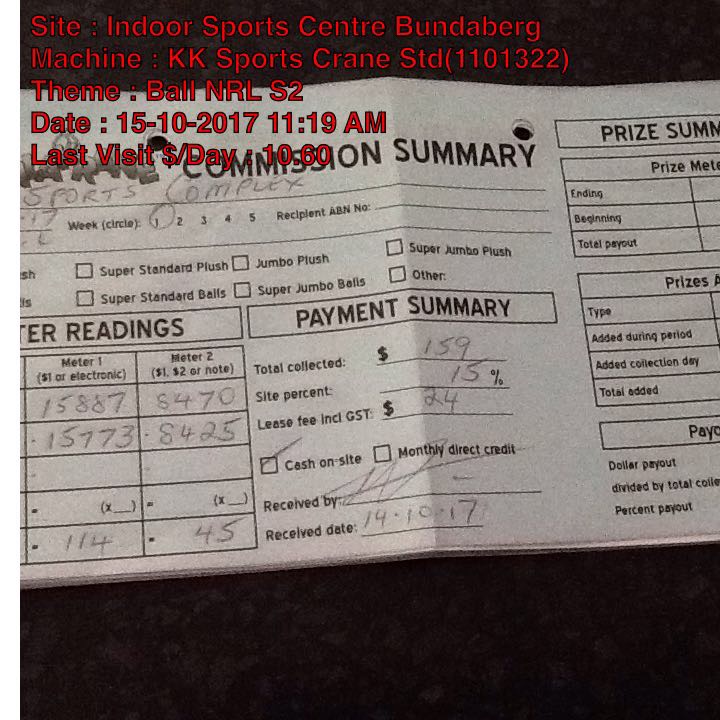 Site : Indoor Sports Centre Bundaberg
Machine : KK Sports Crane Std(1101322)
Theme : Ball NRL S2
Date : 15-10-2017 11:19 AM
Last Visit $/Day : 10.60
COMMISSION SUMMARY
SPORTS COMPLEX
Week (circle): 1 2 3 4 5 Recipient ABN No:
sh Super Standard Plush Jumbo Plush Super Jumbo Plush
ls Super Standard Balls Super Jumbo Balls Other:
ER READINGS
Meter 1 Meter 2
($1 or electronic) ($1, $2 or note)
15887 8470
- 15773 - 8425
= (x__) = (x__)
= 114 = 45
PAYMENT SUMMARY
Total collected: $ 159
Site percent: 15 %
Lease fee incl GST: $ 24
Cash on-site Monthly direct credit
Received by:
Received date: 14.10.17
PRIZE SUMM
Prize Mete
Ending
Beginning
Total payout
Prizes A
Type
Added during period
Added collection day
Total added
Payo
Dollar payout
divided by total colle
Percent payout